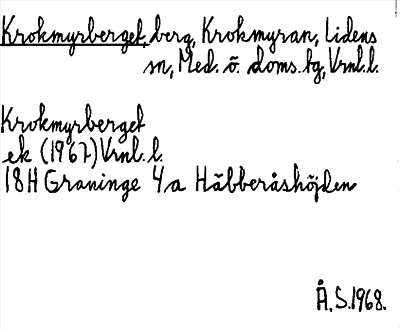 Krokmyrberget, berg, Krokmyran, Lidens
sn, Med. ö. doms. tg, Vrnl. l.
Krokmyrberget
ek (1967) Vrnl. l.
18H Graninge 4a Häbberåshöjden
Å.S. 1968.